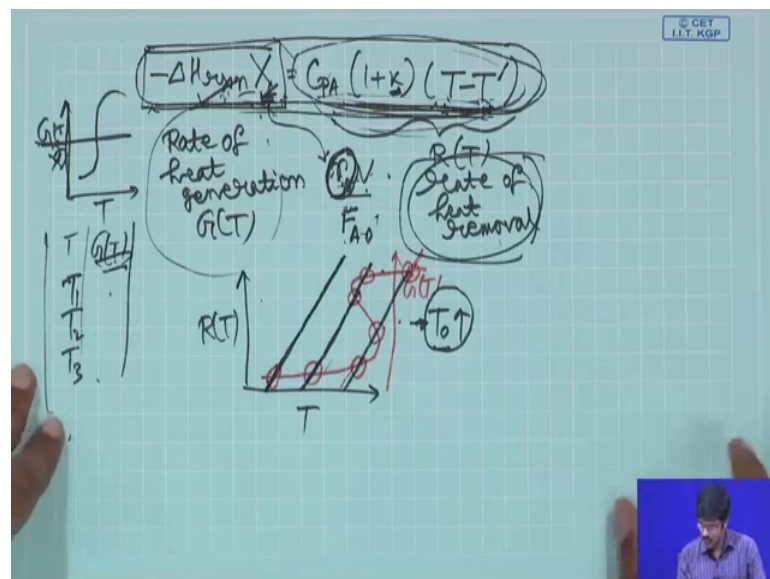 © CET
I.I.T. KGP
-ΔHrxn X = CPA (1+k) (T-T')
G(T)
T
Rate of
heat
generation
G(T)
V
FA0
R(T)
rate of
heat
removal
T G(T)
T1
T2
T3
R(T)
G(T)
T0↑
T